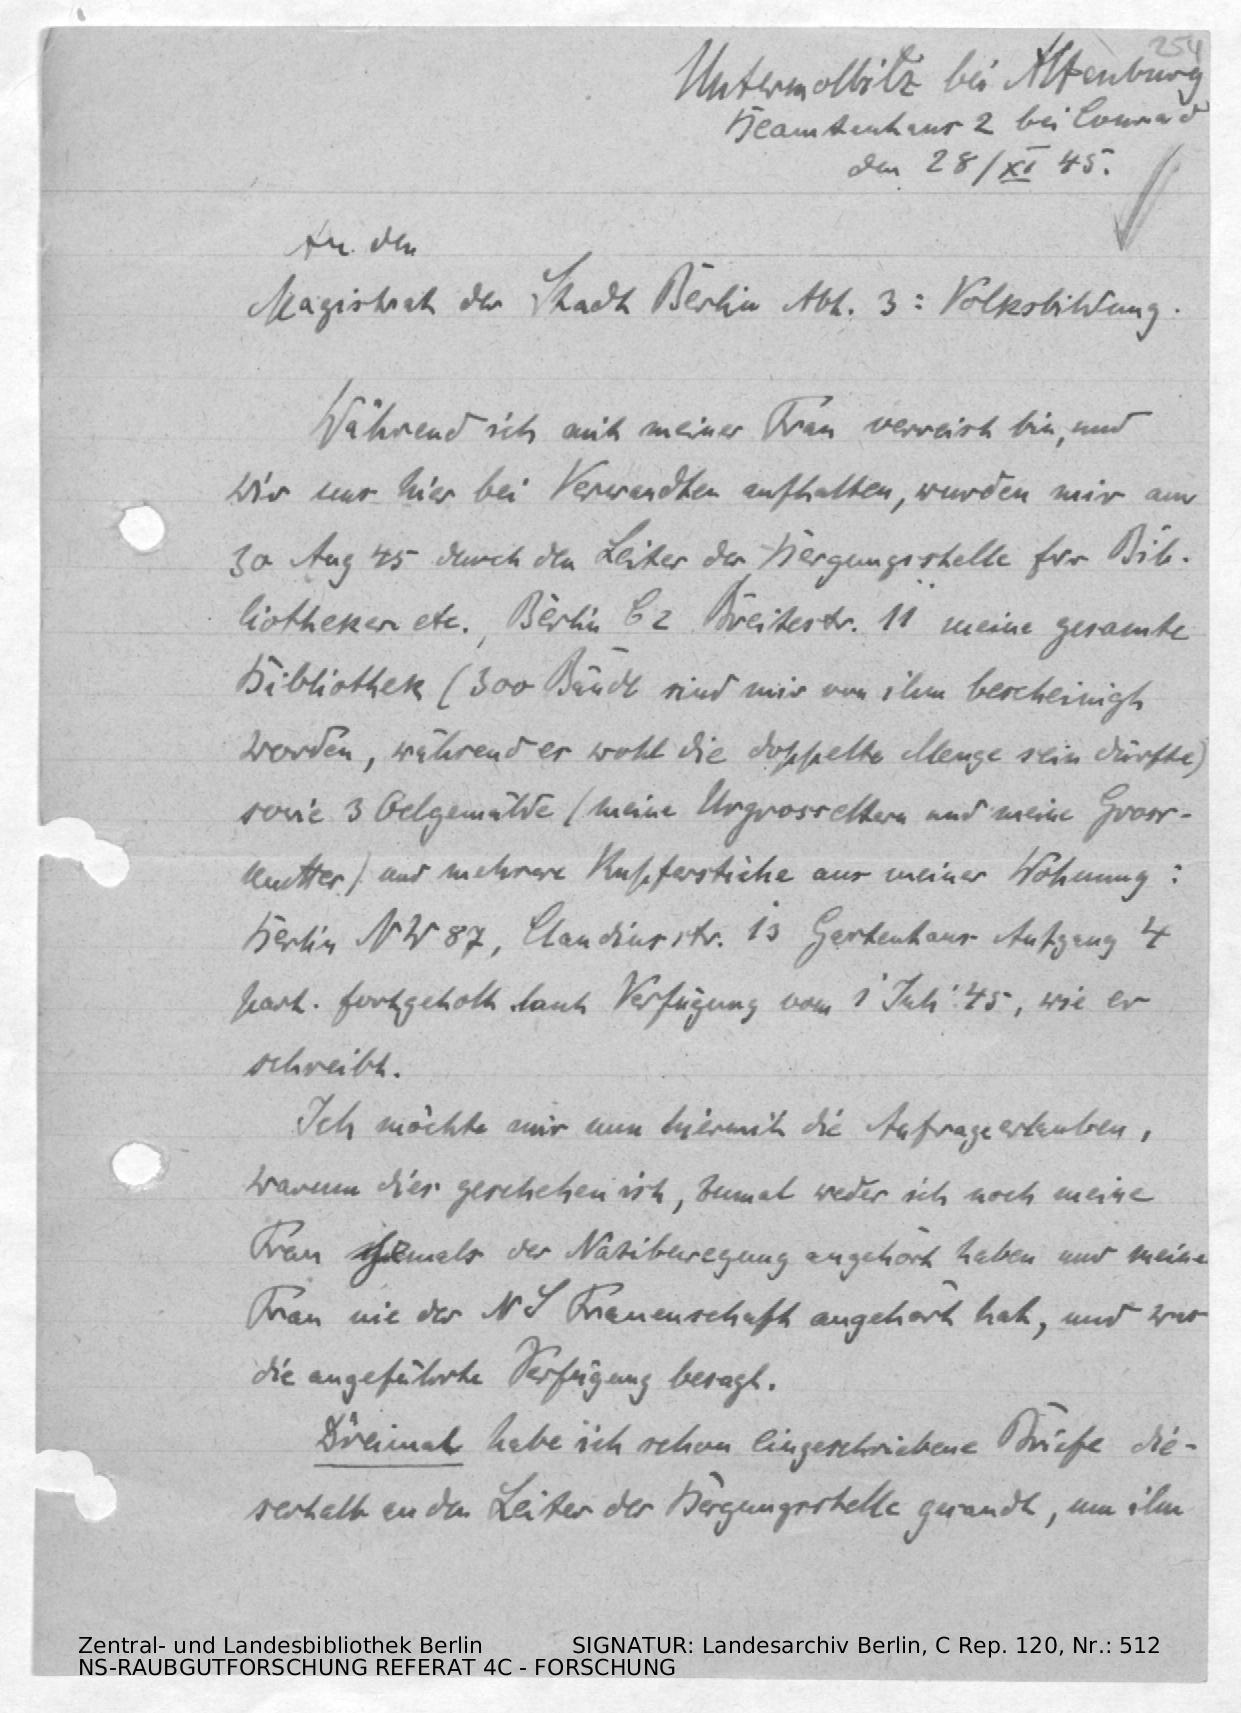 254
Untermolbitz bei Altenburg
Beamtenhaus 2 bei Conrad
den 28/XI 45.
An den
Magistrat der Stadt Berlin Abt. 3: Volksbildung.
Während ich mit meiner Frau verreist bin, und
wir uns hier bei Verwandten aufhalten, wurden mir am
30 Aug 45 durch den Leiter der Bergungsstelle für Bib-
liotheken etc., Berlin C2 Breitestr. 11 meine gesamte
Bibliothek (300 Bände sind mir von ihm bescheinigt
worden, während es wohl die doppelte Menge sein dürfte)
sowie 3 Oelgemälde (meine Urgrosseltern und meine Gross-
mutter) und mehrere Kupferstiche aus meiner Wohnung:
Berlin NW 87, Claudiusstr. 13 Gartenhaus Aufgang 4
part. fortgeholt laut Verfügung vom 1 Juli 45, wie er
schreibt.
Ich möchte mir nun hiermit die Anfrage erlauben,
warum dies geschehen ist, zumal weder ich noch meine
Frau jemals der Nazibewegung angehört haben und meine
Frau nie der NS Frauenschaft angehört hat, und was
die angeführte Verfügung besagt.
Dreimal habe ich schon eingeschriebene Briefe die-
serhalb an den Leiter der Bergungsstelle gesandt, um ihm
Zentral- und Landesbibliothek Berlin SIGNATUR: Landesarchiv Berlin, C Rep. 120, Nr.: 512
NS-RAUBGUTFORSCHUNG REFERAT 4C - FORSCHUNG